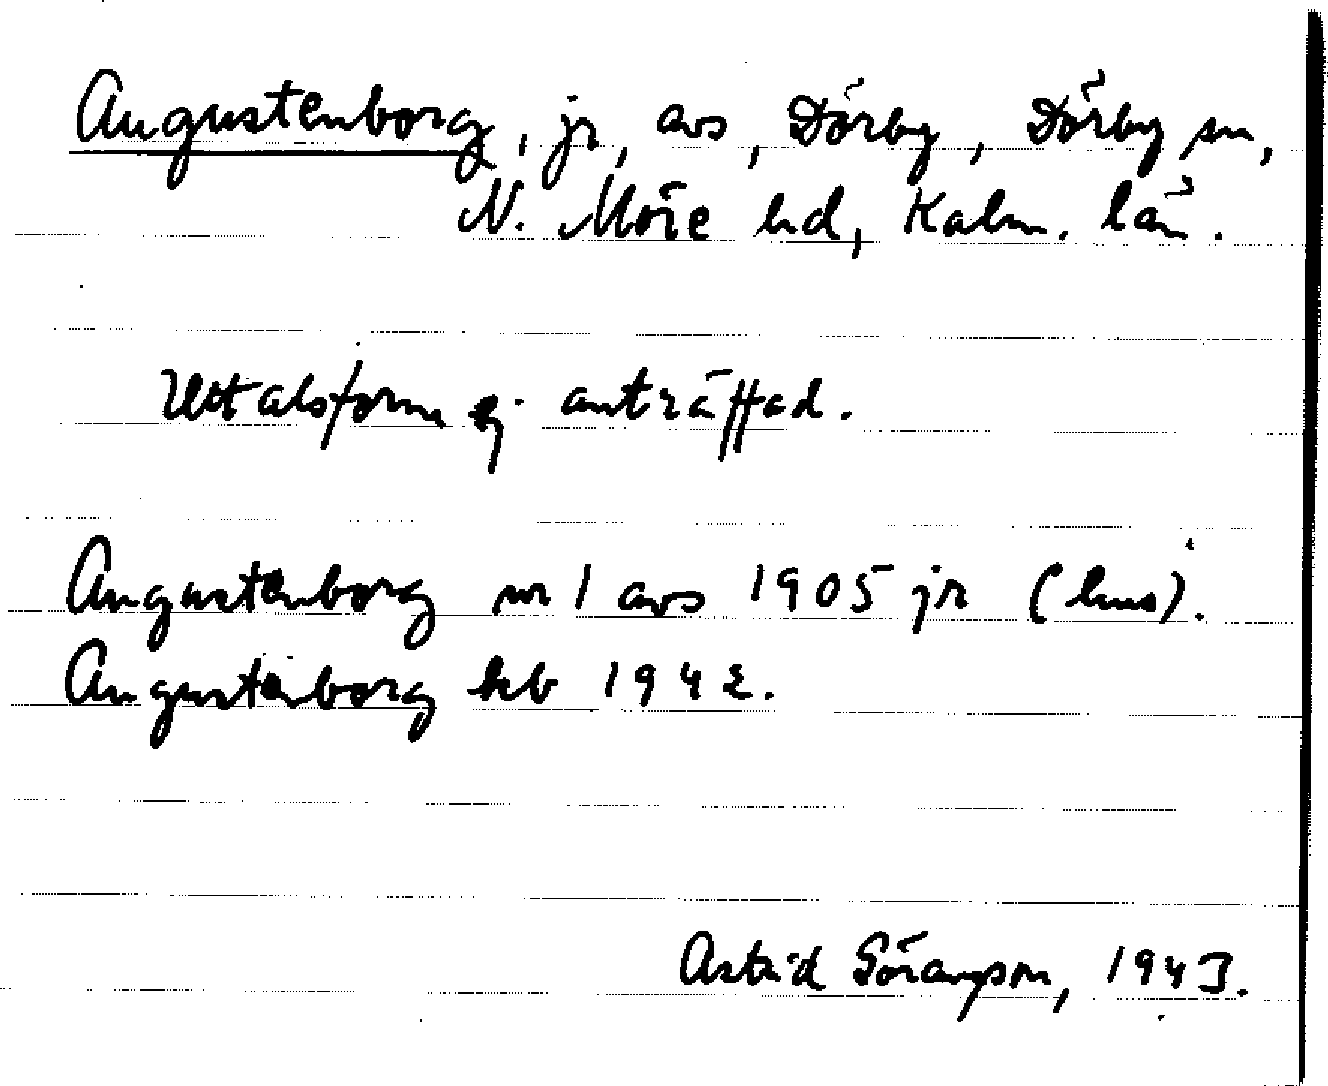 Augustenborg, jr, avs, Dörby, Dörby sn,
N. Möre hd, Kalm. län.
Uttalsform ej anträffad.
Augustenborg nr 1 avs 1905 jr (hus).
Augustenborg kb 1942.
Astrid Göranson, 1943.